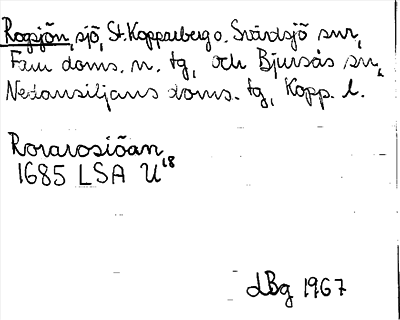 Rogsjön, sjö, St. Kopparberg o. Svärdsjö snr,
Falu doms. n. tg, och Bjursås sn,
Nedansiljans doms. tg, Kopp. l.
Rorarosiöan
1685 LSA U 18
dBg 1967